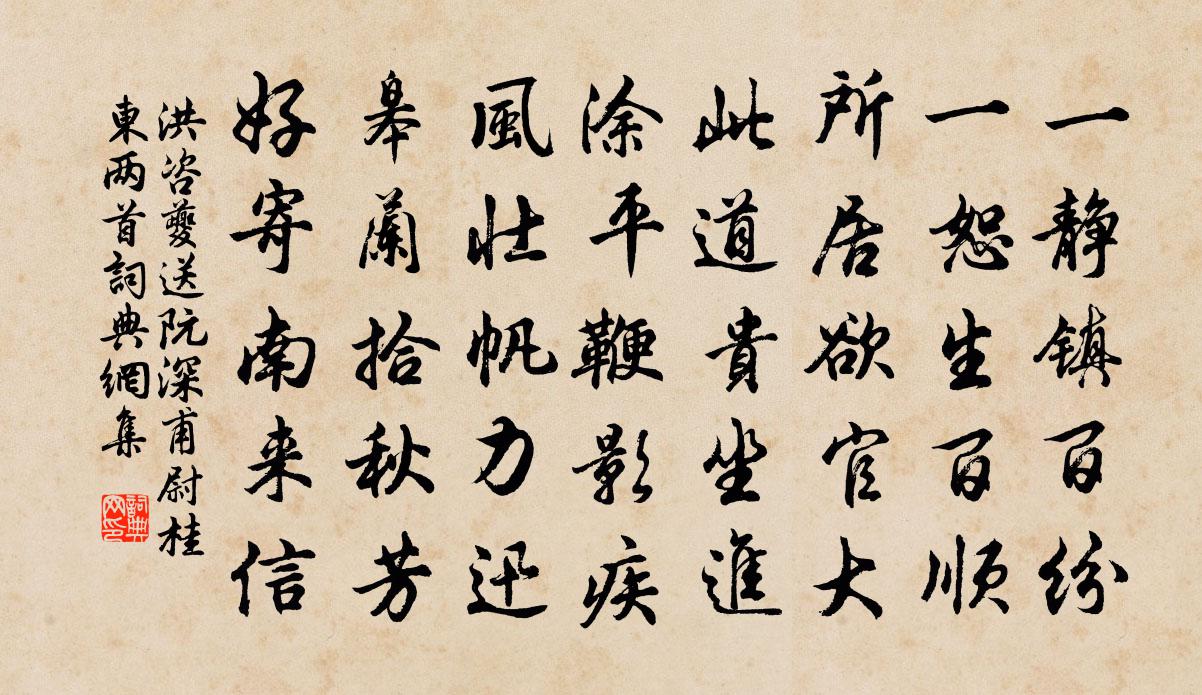 一静镇百纷
一恕生百顺
所居欲官大
此道貴坐進
涂平鞭影疾
風壮帆力迅
皋蘭拾秋芳
好寄南来信
洪咨夔送阮深甫尉桂
東两首詞典網集
詞典
网印